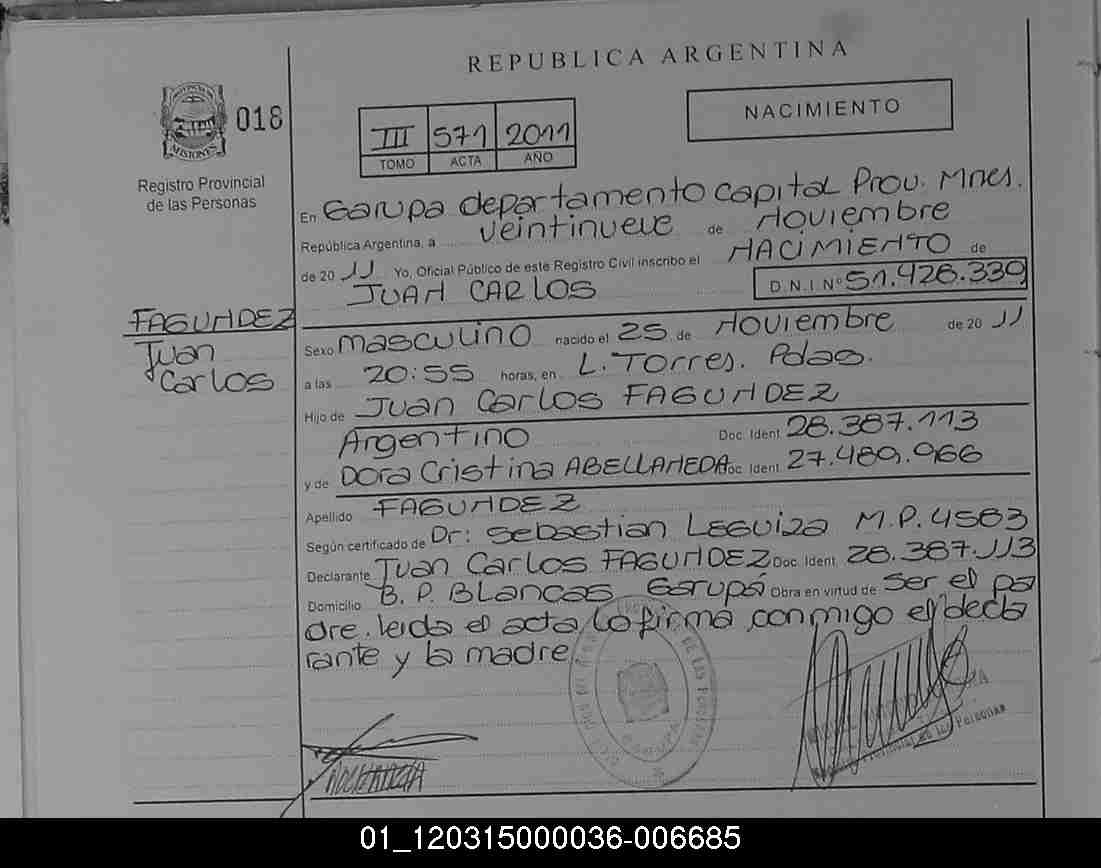 REPUBLICA ARGENTINA
PROVINCIA DE
MISIONES
018
Registro Provincial
de las Personas
III 571 2011
TOMO ACTA AÑO
NACIMIENTO
En Garupa departamento capital Prov. Mnes.
República Argentina, a veintinueve de Noviembre
de 20 11 Yo, Oficial Público de este Registro Civil inscribo el NACIMIENTO de
JUAN CARLOS D.N.I.Nº 51.426.339
FAGUNDEZ
Juan
Carlos
Sexo masculino nacido el 25 de Noviembre de 20 11
a las 20:55 horas, en L. Torres. Pdas.
Hijo de Juan Carlos FAGUNDEZ
Argentino Doc. Ident 28.387.113
y de Dora Cristina ABELLANEDA Doc. Ident 27.480.966
Apellido FAGUNDEZ
Según certificado de Dr: Sebastian Leguiza M.P. 4583
Declarante Juan Carlos FAGUNDEZ Doc. Ident. 28.387.113
Domicilio B. P. Blancas Garupá Obra en virtud de ser el pa
dre. leida el acta la firma conmigo el decla
rante y la madre
de las Personas
01_120315000036-006685